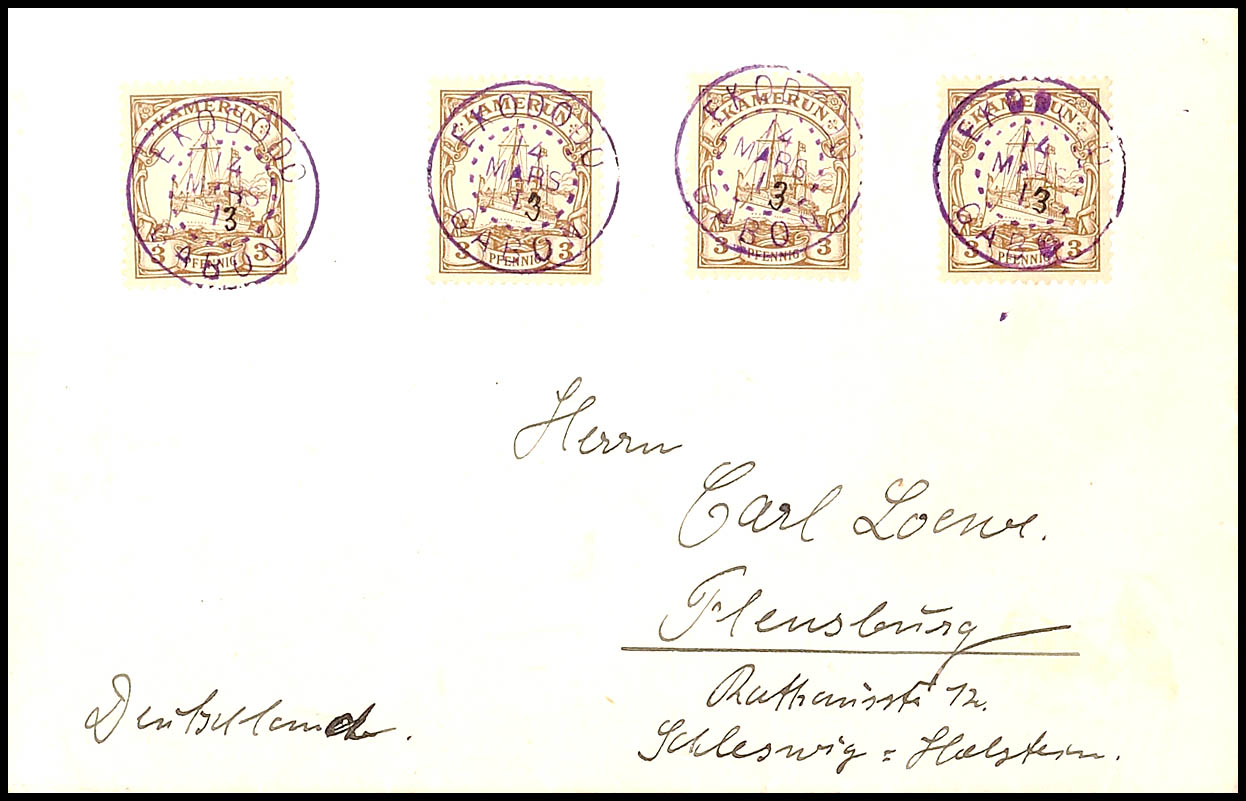 KAMERUN
3 PFENNIG 3
EKODODO
14
MARS
13
GABON
KAMERUN
3 PFENNIG 3
EKODODO
14
MARS
13
GABON
KAMERUN
3 PFENNIG 3
EKODODO
14
MARS
13
GABON
KAMERUN
3 PFENNIG 3
EKODODO
14
MARS
13
GABON
Herrn
Carl Loewe.
Flensburg
Rathausstr 12.
Schleswig = Holstein.
Deutschland.